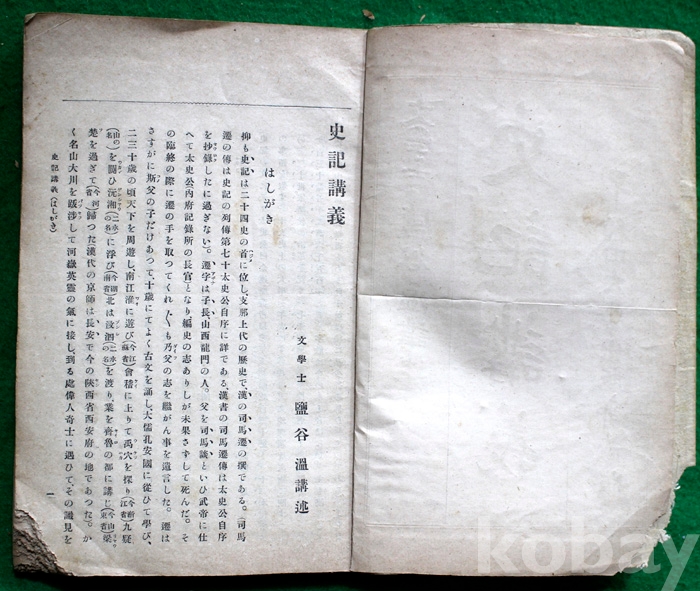 史記講義
文學士 鹽谷溫講述
はしがき
抑も史記は二十四史の首に位し、支那上代の歴史で、漢の司馬遷の撰である。司馬
遷の傳は史記の列傳第七十太史公自序に詳である、漢書の司馬遷傳は太史公自序
を抄錄したに過ぎない。遷字は子長、山西龍門の人。父を司馬談といひ武帝に仕
へて太史公內府記錄所の長官となり、編史の志ありしが未果さずして死んだ。そ
の臨終の際に遷の手を取つてくれ〲も乃父の志を繼がん事を遺言した。遷は
さすがに斯父の子だけあつて、十歲にてよく古文を誦し、大儒孔安國に從ひて學び、
二三十歲の頃天下を周遊し、南江淮に遊び(今江蘇省)會稽に上りて禹穴を探り(今浙江省)九疑
(山の名)を闚ひ沅湘(二水の名)に浮び(今湖南省)北は汶泗(二水の名)を渡り、業を齊魯の都に講じ(今山東省)梁
楚を過ぎて(今河南省)歸つた、漢代の京師は長安で今の陝西省西安府の地であつた。か
く名山大川を跋渉して河嶽英靈の氣に接し、到る處偉人奇士に遇ひて、その識見を
史記講義(はしがき)
一
kobay